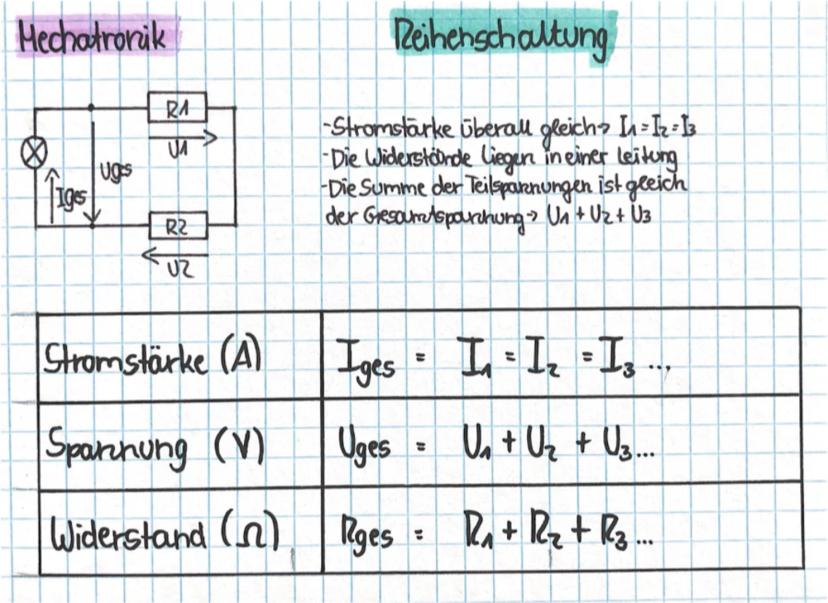 Mechatronik
Reihenschaltung
R1
U1
Uges
Iges
R2
U2
-Stromstärke überall gleich→ I₁=I₂=I₃
-Die Widerstände liegen in einer Leitung
-Die Summe der Teilspannungen ist gleich
der Gesamtspannung→ U₁+U₂+U₃
Stromstärke (A) Iges = I₁ = I₂ = I₃ ...
Spannung (V) Uges = U₁ + U₂ + U₃...
Widerstand (Ω) Rges = R₁ + R₂ + R₃ ...